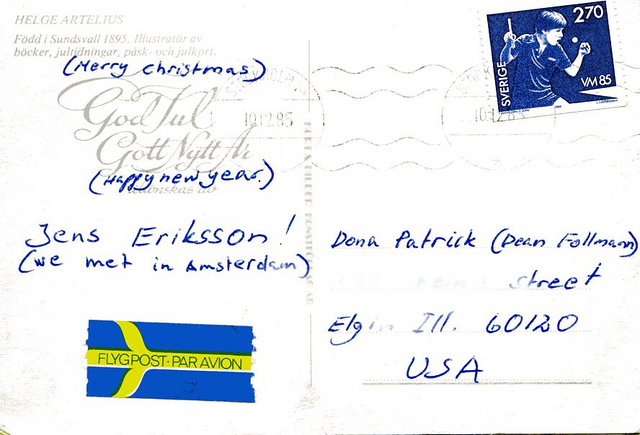 HELGE ARTELIUS
Född i Sundsvall 1895. Illustratör av
böcker, jultidningar, påsk- och julkort.
(Merry christmas)
God Jul
Gott Nytt År
(Happy new year.)
Jens Eriksson!
(we met in Amsterdam)
FLYGPOST · PAR AVION
SVERIGE
270
VM85
10.12.85
10.12.85
Dona Patrick (Dean Follmann)
street
Elgin Ill. 60120
USA